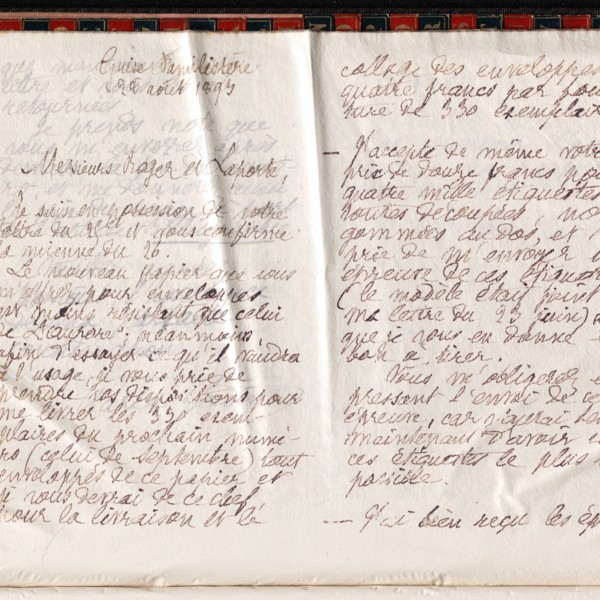 Guise Familistère
28 août 1893
Messieurs Roger et Laporte,
Je suis en possession de votre
lettre du et vous confirme
la mienne du 26.
Le nouveau papier que vous
m'offrez pour enveloppes
est moins résistant que celui
de L'aurore; néanmoins,
afin d'essayer ce qu'il vaudra
à l'usage, je vous prie de
prendre vos dispositions pour
me livrer les 330 exem-
plaires du prochain numé-
ro (celui de septembre) tout
enveloppés de ce papier et
je vous devrai de ce chef
pour la livraison et le
collage des enveloppes
quatre francs par four
ture de 330 exemplair
— J'accepte de même votre
prix de douze francs pou
quatre mille étiquettes
toutes découpées, no
gommées au dos, et
prie de m'envoyer
épreuve de ces étiquet
(le modèle était joint
ma lettre du 23 juin)
que je vous en donne
bon à tirer.
Vous m'obligerez e
pressant l'envoi de ce
épreuve, car j'aurai be
maintenant d'avoir
ces étiquettes le plus
possible.
— J'ai bien reçu les ép